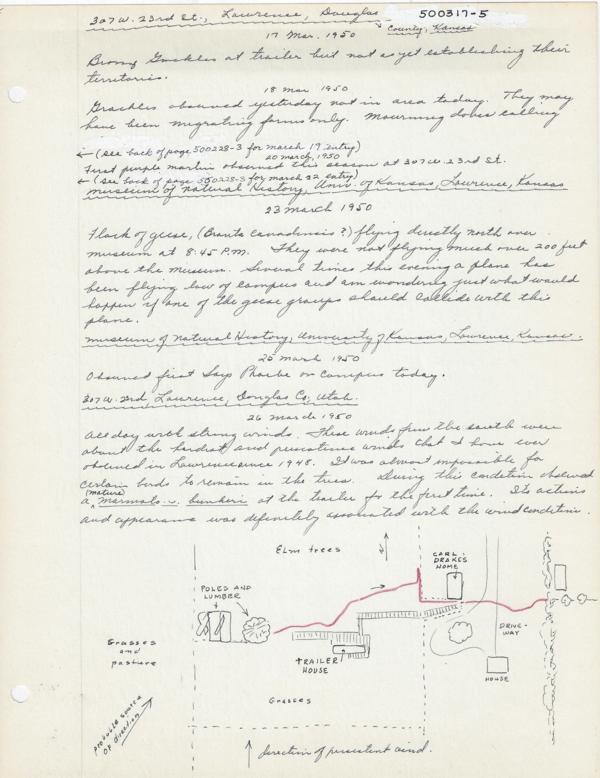 307 W. 23rd St., Lawrence, Douglas
500317-5
County, Kansas
17 Mar. 1950
Bronzy Grackles at trailer but not as yet establishing their
territories.
18 Mar 1950
Grackles observed yesterday not in area today. They may
have been migrating forms only. Mourning doves calling
← (see back of page 500228-3 for march 19 entry)
20 march, 1950
First purple martin observed this season at 307 W. 23rd St.
← (see back of page 500228-3 for march 22 entry)
museum of Natural History, Univ. of Kansas, Lawrence, Kansas
23 March 1950
Flock of geese, (Branta canadensis?) flying directly north over
museum at 8:45 P.M. They were not flying much over 200 feet
above the museum. Several times this evening a plane has
been flying low of campus and am wondering just what would
happen if one of the geese groups should collide with this
plane.
museum of Natural History, University of Kansas, Lawrence, Kansas.
25 march 1950
Observed first Says Phoebe on Campus today.
307 W. 23rd, Lawrence, Douglas Co., Utah.
26 March 1950
All day with strong winds. These winds from the south were
about the hardest and persistant winds that I have ever
observed in Lawrence since 1948. It was almost impossible for
certain birds to remain in the trees. During this condition observed
(mature)
a Marmota m. bunkeri at the trailer for the first time. Its actions
and appearance was definitely associated with the wind condition.
Elm trees
CARL
DRAKES
HOME
POLES AND
LUMBER
Grasses
and
pasture
TRAILER
HOUSE
DRIVE-
WAY
HOUSE
Grasses
probable source
OF direction
direction of persistent wind.